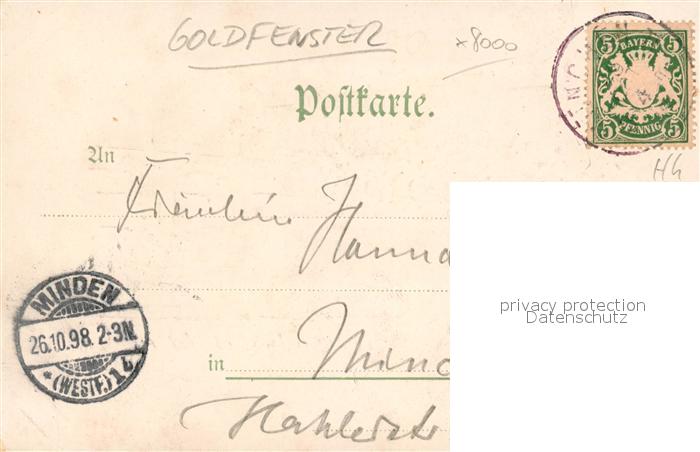 GOLDFENSTER
x8000
5 BAYERN 5
5 PFENNIG 5
Postkarte.
H4
An
Fräulein Hanna
privacy protection
Datenschutz
MINDEN
26.10.98. 2-3N.
* (WESTF.) 1 *
in Mind
Hahlerstr